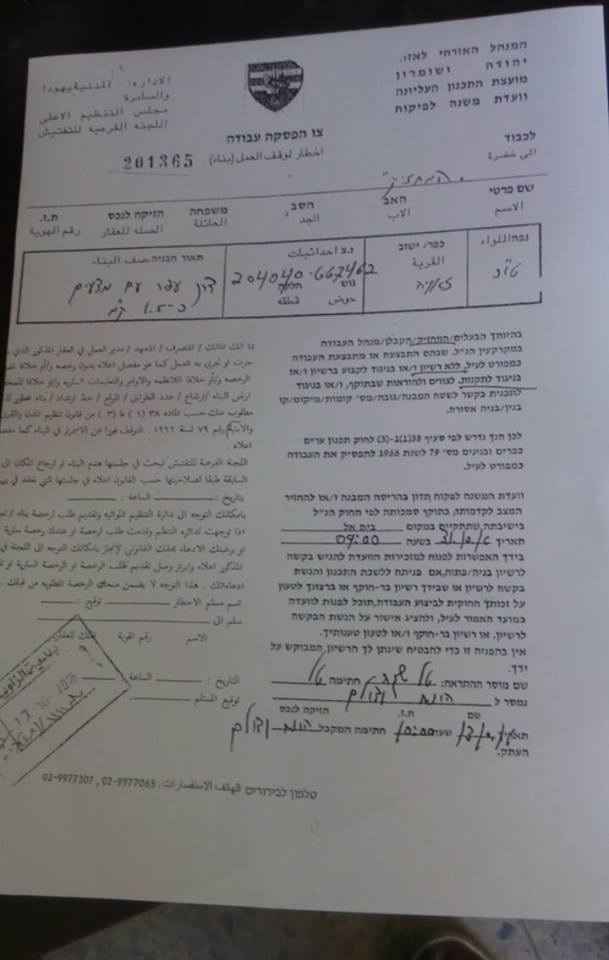 המנהל האזרחי לאזו.
יהודה ושומרון
מועצת התכנון העליונה
וועדת משנה לפיקוח
الادارة المدنية يهودا
والسامرة
مجلس التنظيم الاعلى
اللجنه الفرعيه للتفتيش
צו הפסקה עבודה
اخطار لوقف العمل (بناء)
201365
לכבוד
الى حضرة
המחזיק
שם פרטי האב הסב משפחה הזיקה לנכס ת.ז.
الاسم الاب الجد العائلة الصله للعقار رقم الهوية
נפה/اللواء כפר/ישוב נ.צ احداثيات תאור הבניה/صف البناء
القرية
204040-667462
גוש חלקה
حوض قطعه
דרך עפר עם מצעים
כ-1.5 ק"מ
בהיותך הבעלים/המחזיק/הקבלן/מנהל העבודה
במקרקעין הנ"ל. שבהם התבצעה או מתבצעת העבודה
כמפורט לעיל, ללא רשיון ו/או בניגוד לקבוע ברשיון ו/או
בניגוד לתקנות. לצווים ולהוראות שבתוקף, ו/או בניגוד
לתכנית בקשר לשטח המבנה/גובה/מס' קומות/מיקום/קו
בנין/בניה אסורה.
לכן הנך נדרש לפי סעיף 38(1)(ג) לחוק תכנון ערים
כפרים ובנינים מס' 79 לשנת 1966 להפסיק את העבודה
כמפורט לעיל.
וועדת המשנה לפקוח תדון בהריסה המבנה ו/או להחזיר
המצב לקדמותו, בתוקף סמכותה לפי החוק הנ"ל
בישיבתה, שתתקיים במקום בית אל
תאריך בשעה 09:00
בידך האפשרות לפנות למזכירות הוועדת להגיש בקשה
לרשיון בניה/פתוח, אם פניתה ללשכת התכנון והגשת
בקשה לרשיון או שבידך רשיון בר-חוקף או ברצונך לטעון
על זכותך החוקית לביצוע העבודה, תוכל לפנות לוועדה
במועד האמור לעיל, ולהציג אישור על הגשת הבקשה
לרשיון. או רשיון בר-חוקף ו/או לטעון טענותיך.
אין בהפניה זו כדי להבטיח שינתן לך הרשיון, המבוקש על
ידך.
שם מוסר ההתראה: טל חתימה טל
נמסר ל
שם ת.ז. הזיקה לנכס
תאריך שעה 10:00 חתימת המקבל
העתק.
بما انك المالك / المتصرف / المتعهد / مدير العمل في العقار المذكور الذي
جرت او تجري به العمل كما هو مفصل اعلاه بدون رخصه و/او خلافا
الرخصه و/او خلافا للانظمه والاوامر والتعليمات الساريه و/او خلافا
ارض البناء/ارتفاع / عدد الطوابق / الموقع / خط ارتداد / بناء محظور
مطلوب منك حسب الماده ٣٨ (١) ط (٣) من قانون تنظيم المدن والقرى
والابنيه رقم ٧٩ لسنة ١٩٦٦. التوقف فورا عن الاستمرار في البناء كما
اعلاه.
اللجنه الفرعيه للتفتيش تبحث في جلستها هدم البناء او ارجاع المكان الى
السابقة طبقا لصلاحيتها حسب القانون اعلاه في جلستها التي تعقد في
بتاريخ: الساعة:
بامكانك التوجه الى دائرة التنظيم اللوائيه وتقديم طلب لرخصة بناء
اذا توجهت لدائره التنظم وقدمت طلب لرخصة او عندك رخصة ساريه
او برغبتك الادعاء بحقك القانوني لإنجاز بامكانك التوجه الى اللجنة في
المذكور اعلاه وابراز وصل تقديم طلب الرخصه او الرخصة السارية او
ادعاءاتك. هذا التوجه لا يضمن منحك الرخصة المطلوبه من قبلك.
اسم مسلم الاخطار توقيع:
سلم الى
الاسم رقم الهوية
التاريخ: الساعة
توقيع المستلم
טלפון לבירורים الهاتف الاستفسارات: 02-9977063 , 02-9977307